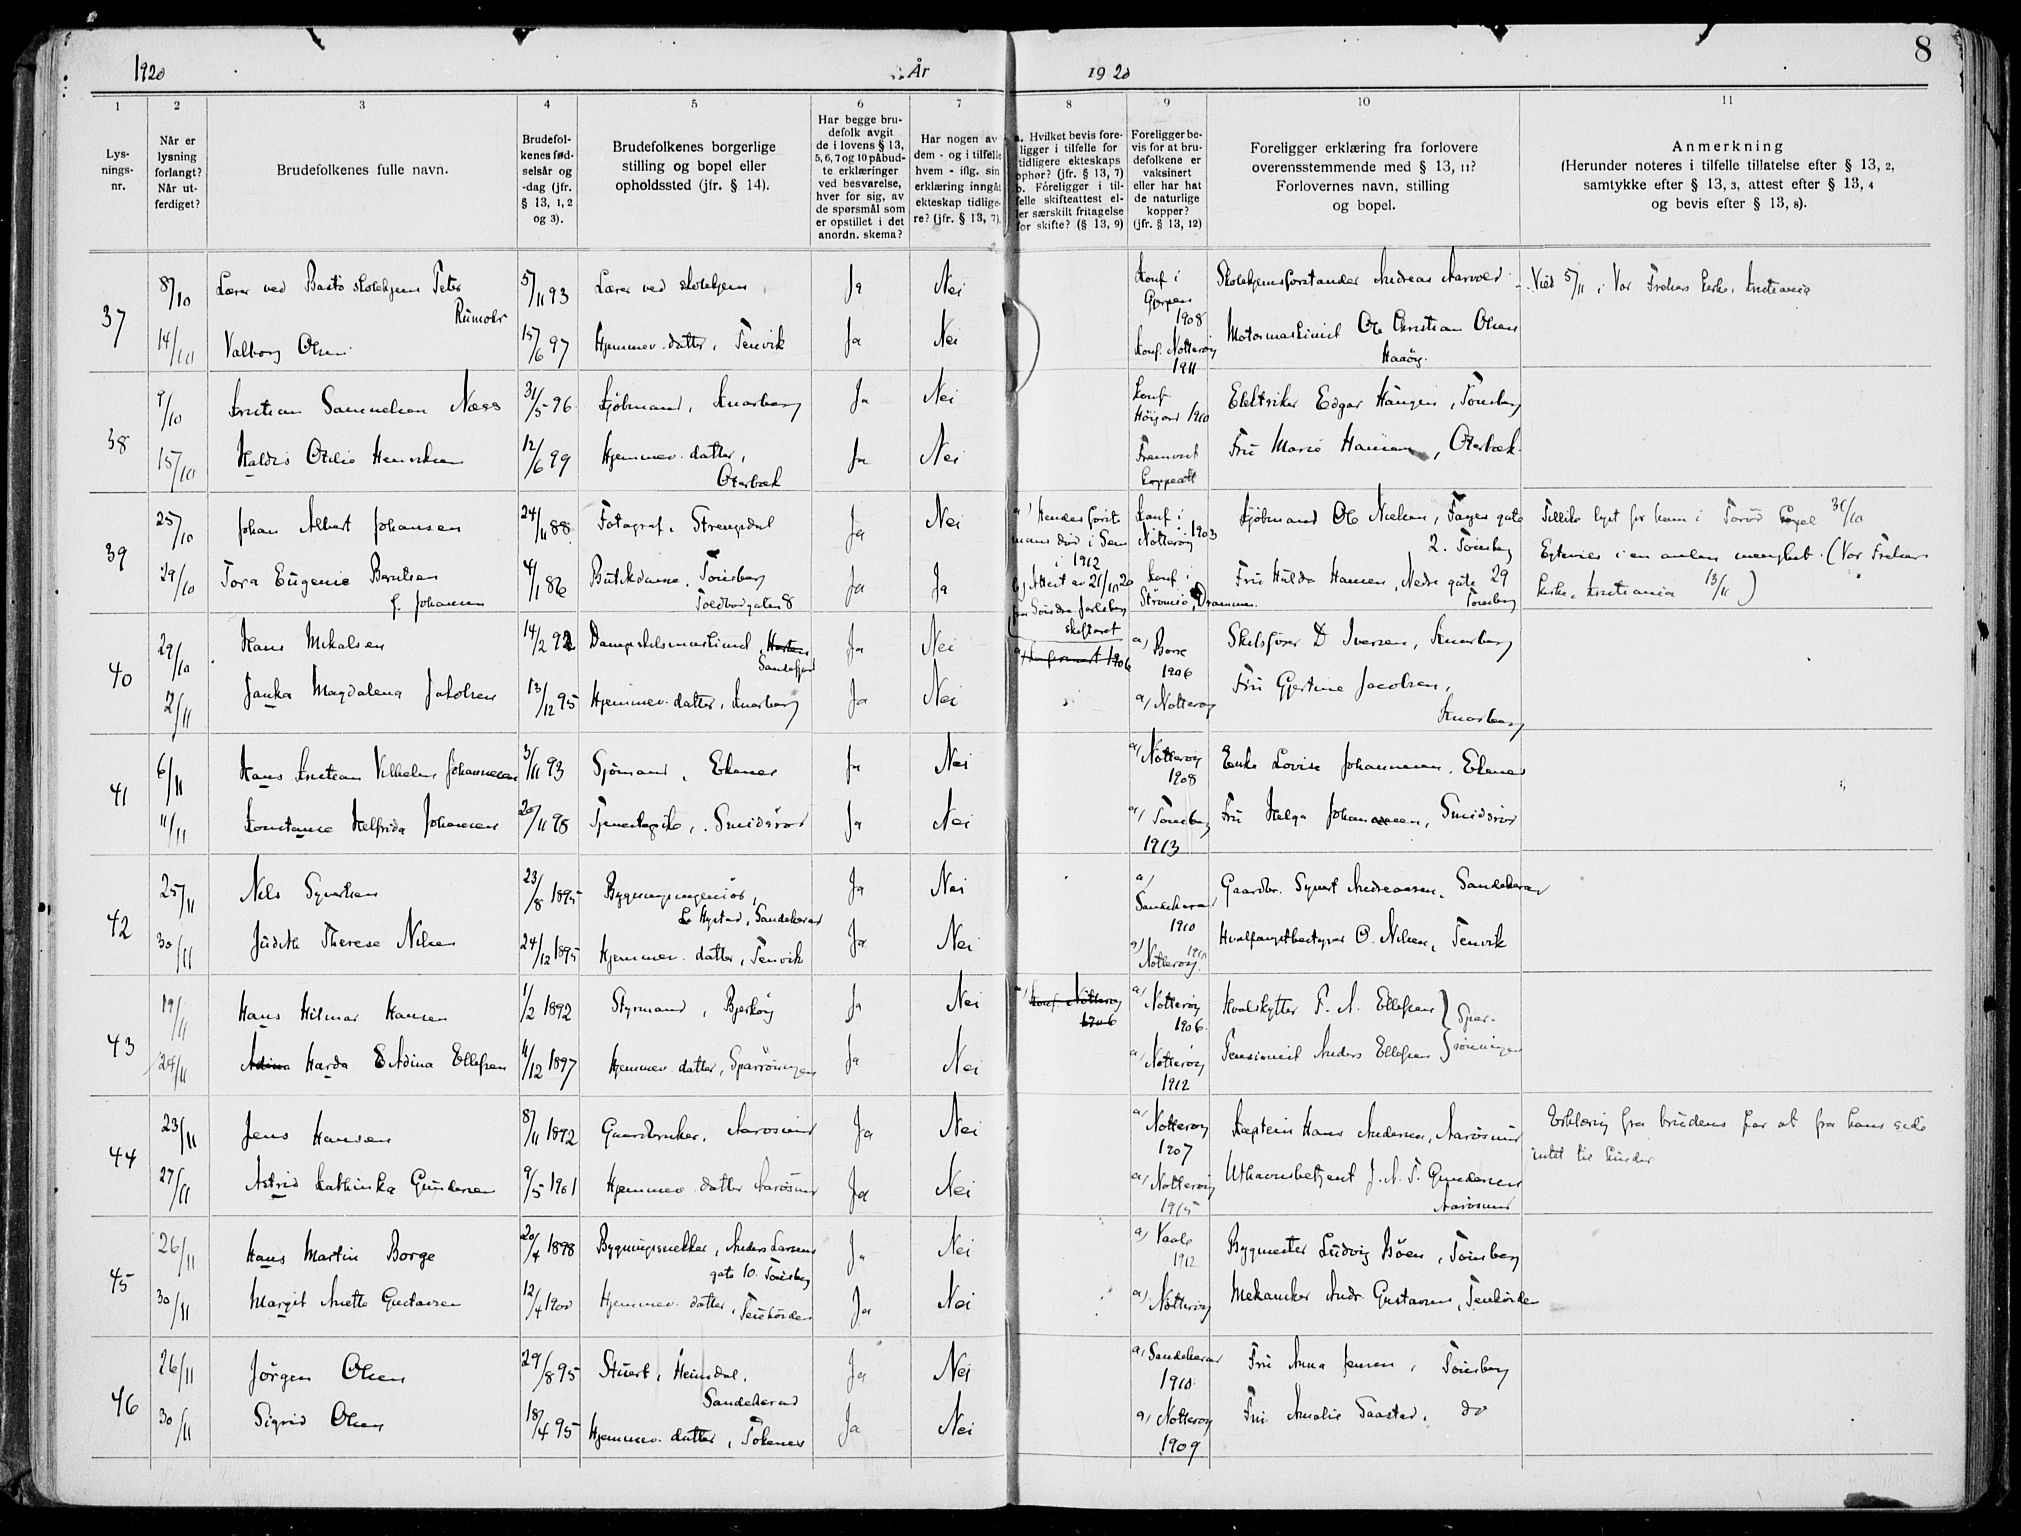 8
1920 År 1920
1 2 3 4 5 6 7 8 9 10 11
Lys-
nings-
nr.
Når er
lysning
forlangt?
Når ut-
ferdiget?
Brudefolkenes fulle navn.
Brudefol-
kenes fød-
selsår og
-dag (jfr.
§ 13, 1, 2
og 3).
Brudefolkenes borgerlige
stilling og bopel eller
opholdssted (jfr. § 14).
Har begge bru-
defolk avgit
de i lovens § 13,
5, 6, 7 og 10 påbud-
te erklæringer
ved besvarelse,
hver for sig, av
de spørsmål som
er opstillet i det
anordn. skema?
Har nogen av
dem - og i tilfelle
hvem - iflg. sin
erklæring inngått
ekteskap tidlige-
re? (jfr. § 13, 7).
a. Hvilket bevis fore-
ligger i tilfelle for
tidligere ekteskaps
ophør? (jfr. § 13, 7)
b. Foreligger i til-
felle skifteattest el-
ler særskilt fritagelse
for skifte? (§ 13, 9)
Foreligger be-
vis for at bru-
defolkene er
vaksinert
eller har hat
de naturlige
kopper?
(jfr. § 13, 12)
Foreligger erklæring fra forlovere
overensstemmende med § 13, 11?
Forlovernes navn, stilling
og bopel.
Anmerkning
(Herunder noteres i tilfelle tillatelse efter § 13, 2,
samtykke efter § 13, 3, attest efter § 13, 4
og bevis efter § 13, 8).
37
8/10 Lærer ved Bastø skolehjem Peter
Rumohr
5/11 93 Lærer ved skolehjem Ja Nei
Konf i
Gjerpen
1908
Skolehjemsforstander Andreas Aarvold
Viet 5/11 i Vor Frelsers kirke, Kristiania
14/10 Valborg Olsen 15/6 97 Hjemmev. datter, Tenvik Ja Nei
Konf. Nøtterøy
1911
Motormaskinist Ole Christian Olsen
38
9/10 Kristian Samuelsen Næss 31/5 96 Kjøbmand, Knarberg Ja Nei
Konf
1910
Elektriker Edgar Haugen, Tønsberg
15/10 Haldis Otilie Henriksen 12/6 99 Hjemmev. datter,
Oterbæk
Ja Nei
Fremvist
koppeatt
Fru Marie Hansen, Oterbæk
39
25/10 Johan Albert Johansen 24/11 88 Fotograf, Strengsdal Ja Nei
a) Hendes første
mand død i Sem
i 1912
Konf i
Nøtterøy 1903
Kjøbmand Ole Nielsen, Farger gate
2. Tønsberg
Tillike lyst for ham i Torød kapel 31/10
29/10 Tora Eugenie Berntsen
f. Johansen
4/1 86 Butikdame, Tønsberg
Toldbodgaten 8
Ja Ja
b) Attest av 21/10 20
fra Søndre Jarlsberg
skifteret
Konf i
Strømsø, Drammen.
Fru Hulda Hansen, Nedre gate 29
Tønsberg
Egtevies i en anden menighet. (Vor Frelsers
kirke, Kristiania 13/11)
40
29/10 Hans Mikalsen 14/2 92 Dampskibsmaskinist Horten
Sandefjord
Ja Nei
a) Konfirmert 1906
a) Borre
1906
Skibsfører D Iversen, Knarberg
2/11 Janka Magdalena Jakobsen 13/12 95 Hjemmev. datter, Knarberg Ja Nei
a) Nøtterøy
Fru Gjertine Jacobsen,
Knarberg
41
6/11 Hans Kristian Vilhelm Johannessen 3/11 93 Sjømand, Ekenes Ja Nei
a) Nøtterøy
1908
Enke Lovise Johannesen, Ekenes
11/11 Konstanse Helfrida Johansen 20/11 98 Tjenestepike, Smidsrød Ja Nei
a) Tønsberg
1913
Fru Helga Johansen, Smidsrød
42
25/11 Nils Syvertsen 23/8 1895 Bygningsingeniør,
Hystad, Sandeherad
Ja Nei
a)
Sandeherad
1910
Gaardbr. Syvert Andreassen, Sandeherad
30/11 Judith Therese Nilsen 24/12 1895 Hjemmev. datter, Tenvik Ja Nei
a)
Nøtterøy
Hvalfangstbestyrer O. Nilsen, Tenvik
43
19/11 Hans Hilmar Hansen 1/2 1892 Styrmand, Bjerkøy Ja Nei
a) Konf. Nøtterøy
1906
a) Nøtterøy
1906
Hvalskytter F. A. Ellefsen
Spar-
rønningen
24/11 Adina Harda E Adina Ellefsen 11/12 1897 Hjemmev. datter, Sparrøningen Ja Nei
a) Nøtterøy
1912
Pensionist Anders Ellefsen
44
23/11 Jens Hansen 8/11 1892 Gaardbruker, Aarøsund Ja Nei
a) Nøtterøy
1907
Kaptein Hans Andersen, Aarøsund
Erklæring fra brudens far at fra hans side
intet til hinder
27/11 Astrid Kathinka Gundersen 9/5 1901 Hjemmev. datter Aarøsund Ja Nei
a) Nøtterøy
1915
Uthavnsbetjent J. A. T. Gundersen
Aarøsund
45
26/11 Hans Martin Borge 20/4 1898 Bygningssnekker, Anders Larsens
gate 10. Tønsberg
Ja Nei
a) Vaale
1912
Bygmester Ludvig Bøen, Tønsberg
30/11 Margit Anette Gustavsen 12/4 1900 Hjemmev. datter, Ja Nei
a) Nøtterøy
Mekaniker Andr. Gustavsen,
46
26/11 Jørgen Olsen 29/8 95 Stuert, Heimdal,
Sandeherad
Ja Nei
a) Sandeherad
1910
Fru Anna Jensen, Tønsberg
30/11 Sigrid Olsen 18/4 95 Hjemmev. datter, Tokenes Ja Nei
a) Nøtterøy
1909
Fru Amalie Taastad, do